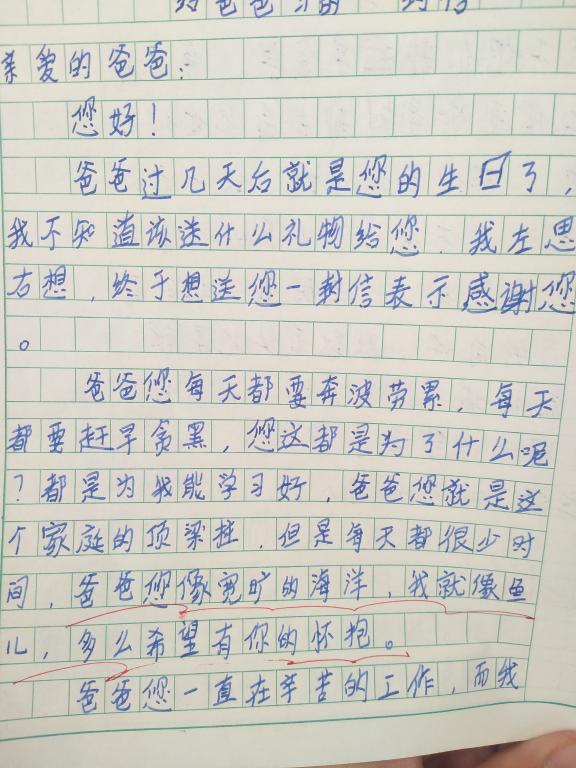 给爸爸写的一封信
亲爱的爸爸:
您好!
爸爸过几天后就是您的生日了,
我不知道该送什么礼物给您,我左思
右想,终于想送您一封信表示感谢您
。
爸爸您每天都要奔波劳累,每天
都要赶早贪黑,您这都是为了什么呢
?都是为我能学习好,爸爸您就是这
个家庭的顶梁柱,但是每天都很少时
间,爸爸您像宽旷的海洋,我就像鱼
儿,多么希望有你的怀抱。
爸爸您一直在辛苦的工作,而我